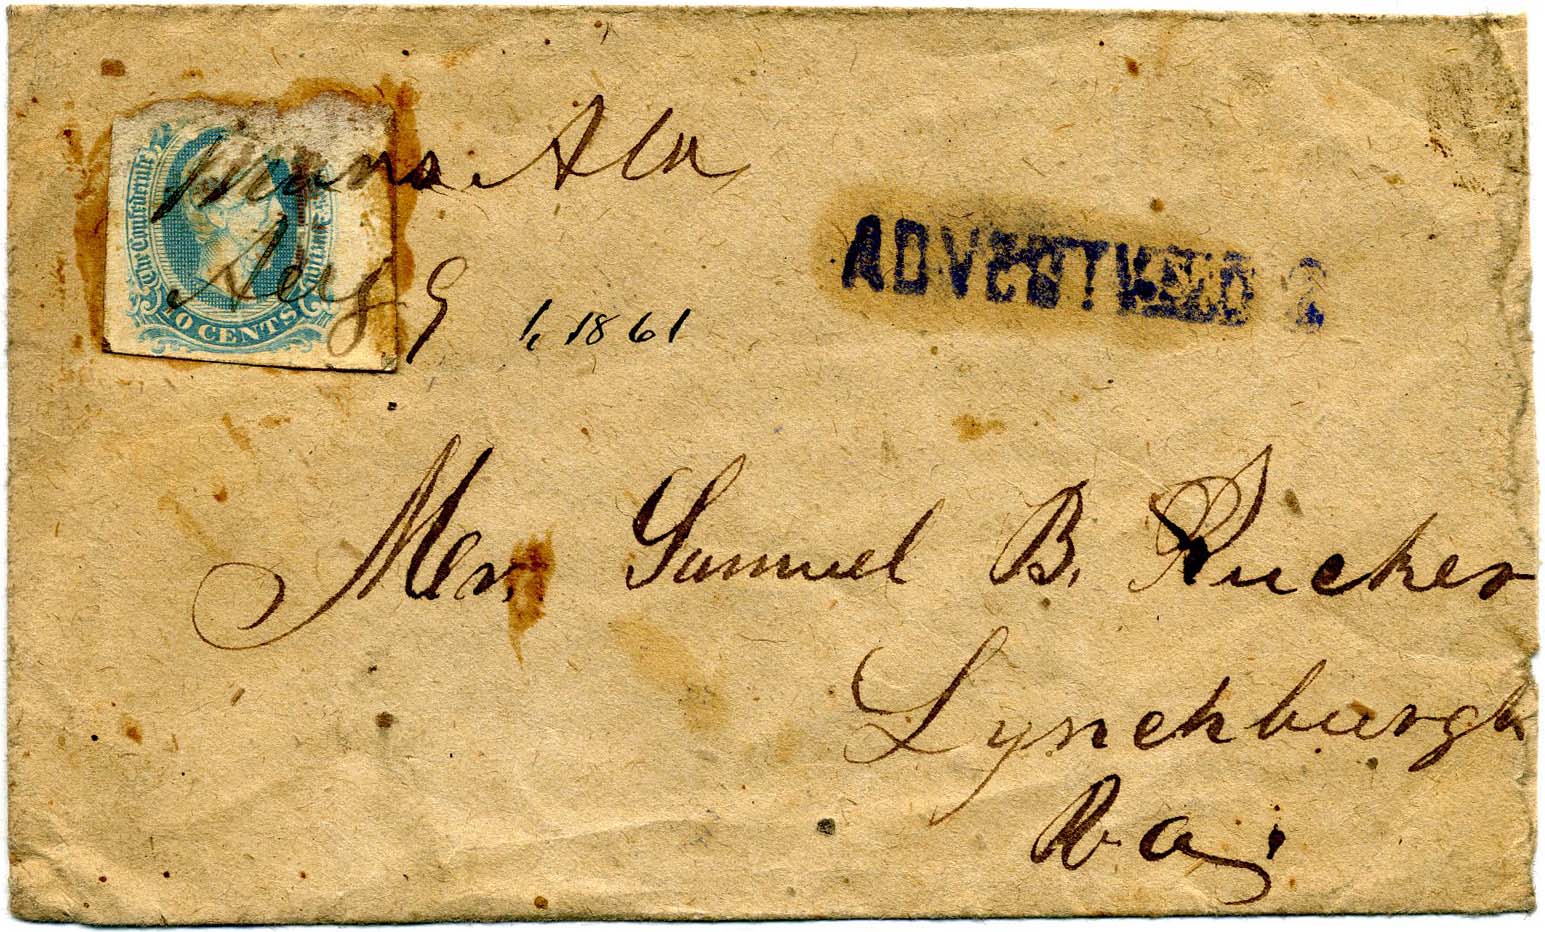 Ala
The Confederate States
Aug 9
10 CENTS
1861
ADVERTISED 2
Mr. Samuel B. Rucker
Lynchburgh
Va